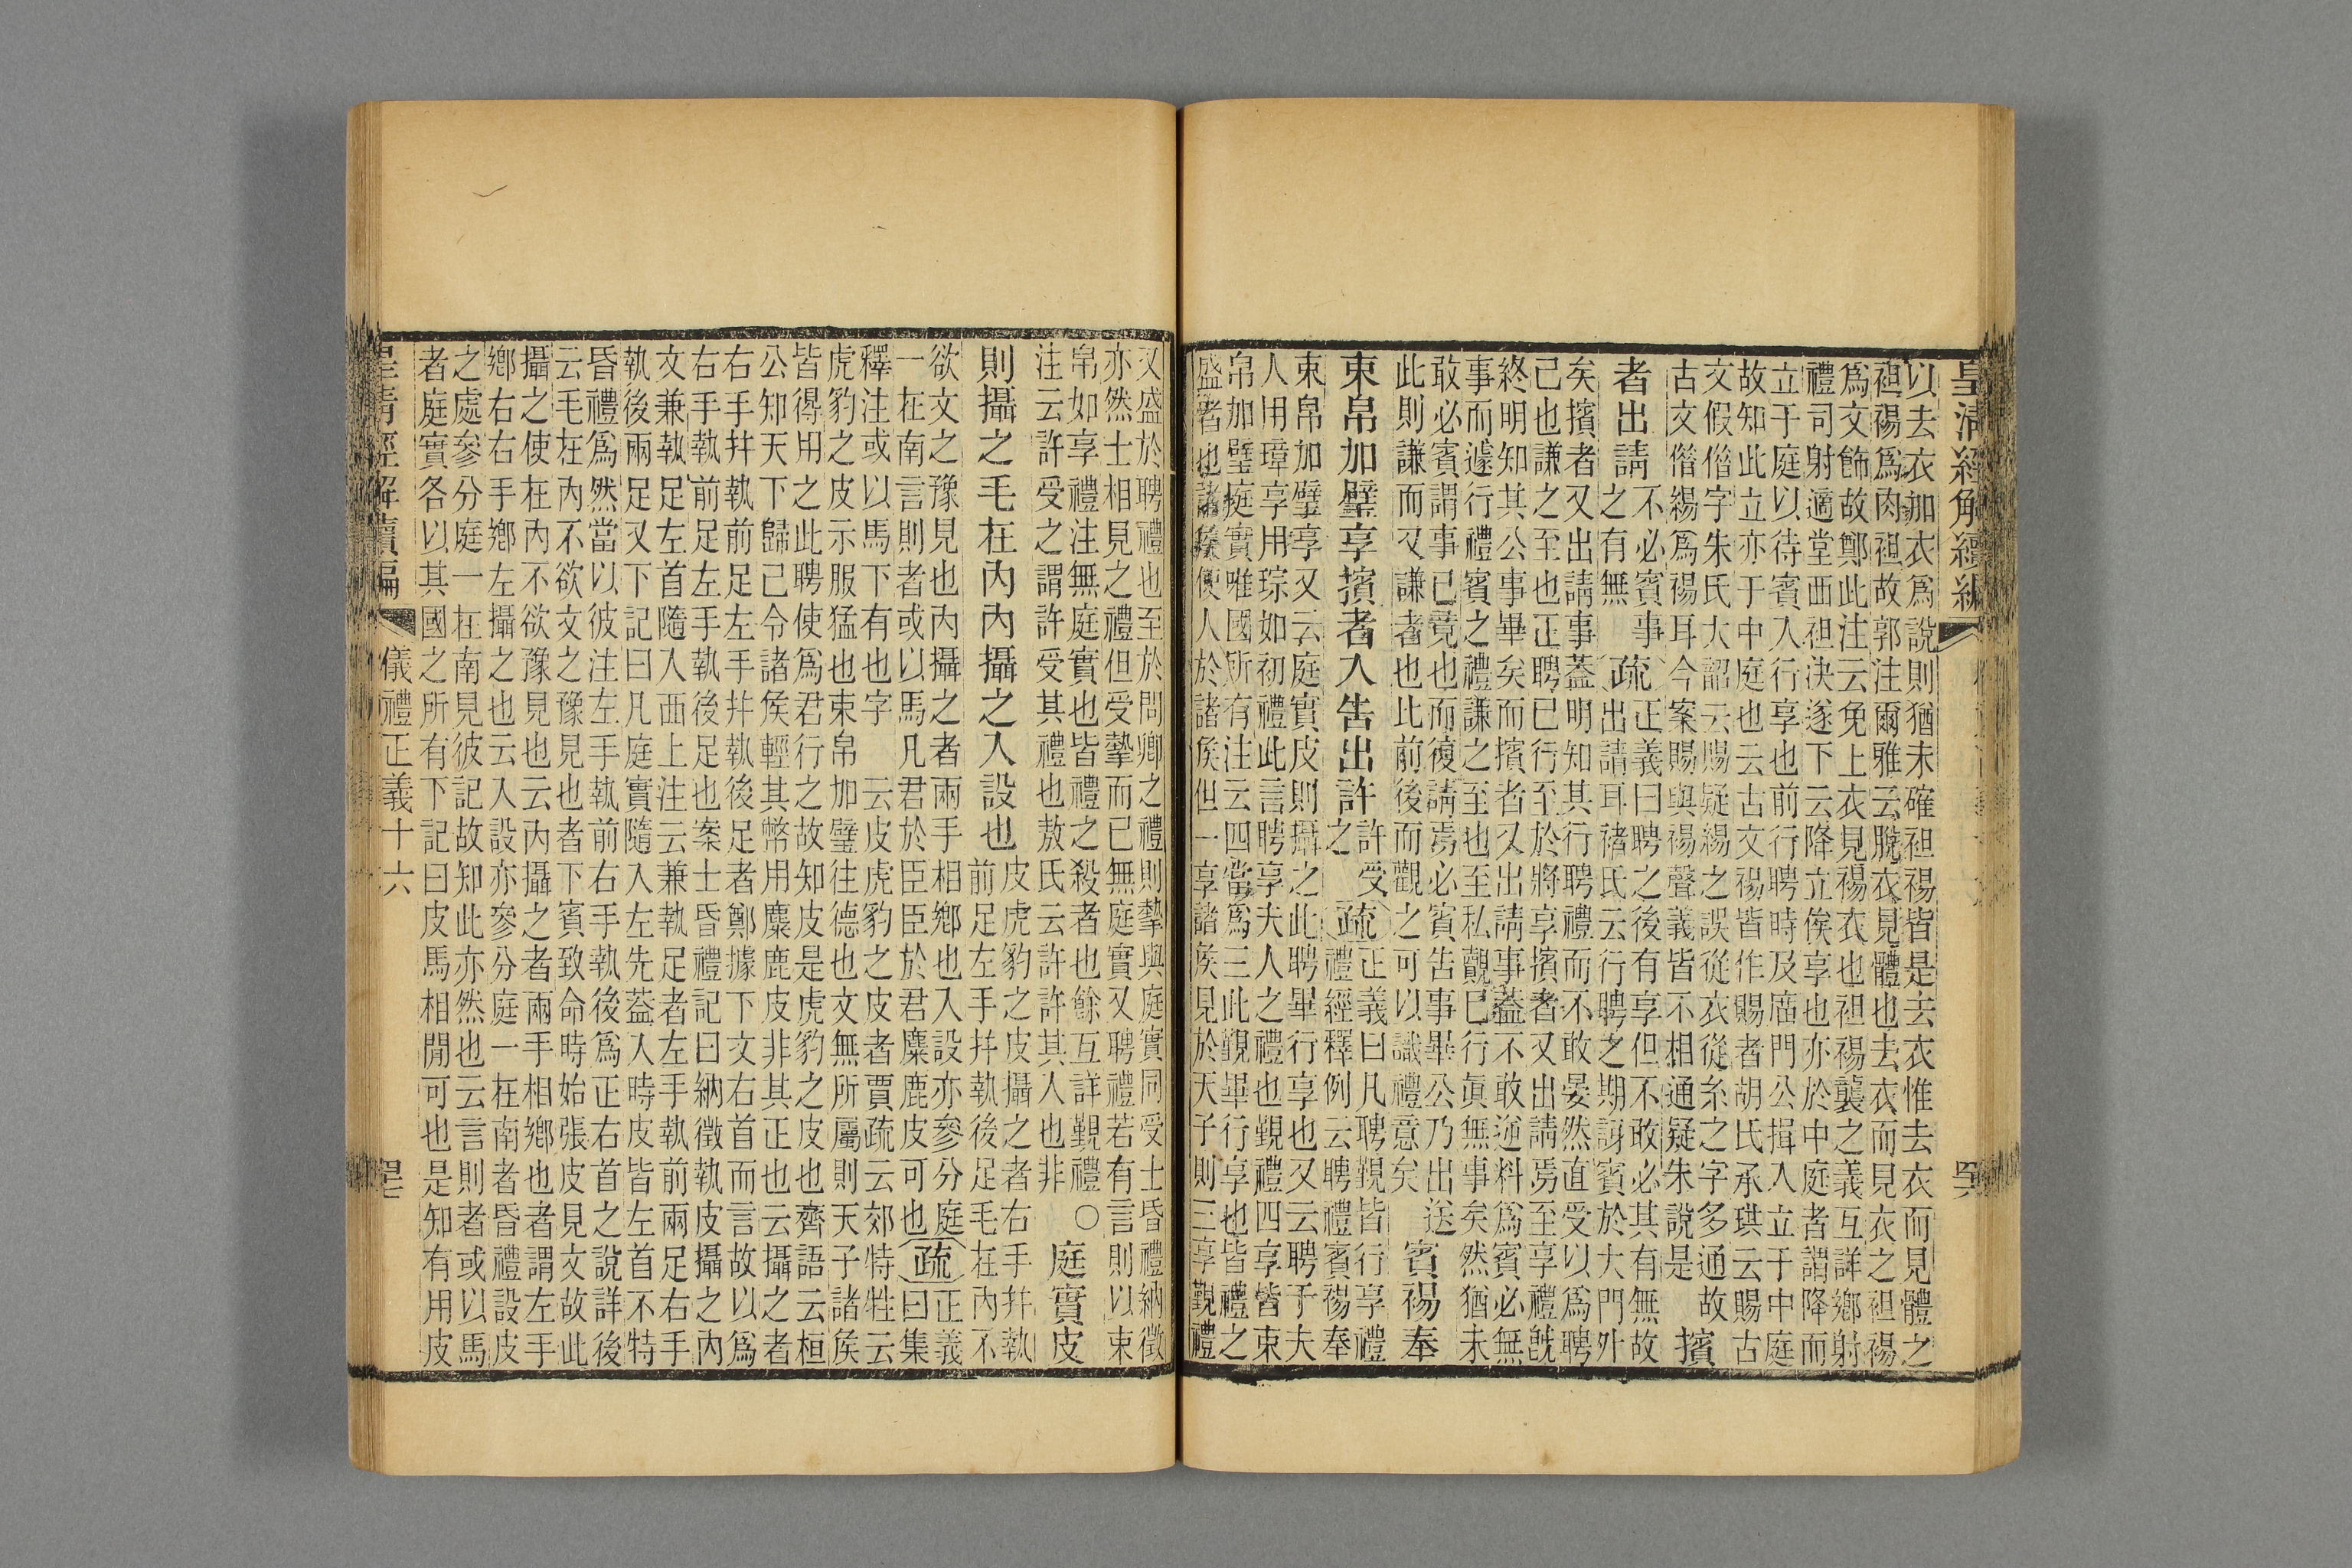 皇清經解續編
以去衣加衣爲說則猶未確袒裼皆是去衣惟去衣而見體之
袒裼爲肉袒故郭注爾雅云脫衣見體也去衣而見衣之袒裼
爲文飾故鄭此注云免上衣見裼衣也袒裼襲之義互詳鄉射
禮司射適堂西袒決遂下云降立俟享也亦於中庭者謂降而
立于庭以待賓入行享也前行聘時及廟門公揖入立于中庭
故知此立亦于中庭也云古文裼皆作賜者胡氏承珙云賜古
文假偕字朱氏大韶云賜疑緆之誤從衣從糸之字多通故
古文偕緆爲裼耳今案賜與裼聲義皆不相通疑朱說是 擯
者出請不必賓事之有無疏正義曰聘之後有享但不敢必其有無故
出請耳褚氏云行聘之期訝賓於大門外
矣擯者又出請事葢明知其行聘禮而不敢晏然直受以爲聘
已也謙之至也正聘已行至於將享擯者又出請焉至享禮旣
終明知其公事畢矣而擯者又出請事葢不敢逆料爲賓必無
事而遽行禮賓之禮謙之至也至私覿已行眞無事矣然猶未
敢必賓謂事已竟也而復請焉必賓告事畢公乃出送
此則謙而又謙者也此前後而觀之可以識禮意矣 賓裼奉
束帛加璧享擯者入告出許許受之疏正義曰凡聘覲皆行享禮
禮經釋例云聘禮賓裼奉
束帛加璧享又云庭實皮則攝之此聘畢行享也又云聘于夫
人用璋享用琮如初禮此言聘享夫人之禮也覲禮四享皆束
帛加璧庭實唯國所有注云四當爲三此覲畢行享也皆禮之
盛者也諸侯使人於諸侯但一享諸侯見於天子則三享覲禮
又盛於聘禮也至於問卿之禮則摯與庭實同受士昏禮納徵
亦然士相見之禮但受摯而已無庭實又聘禮若有言則以束
帛如享禮注無庭實也皆禮之殺者也餘互詳覲禮○
注云許受之謂許受其禮也敖氏云許許其入也非 庭實皮
則攝之毛在內內攝之入設也皮虎豹之皮攝之者右手幷執
前足左手幷執後足毛在內不
欲文之豫見也內攝之者兩手相鄉也入設亦參分庭
一在南言則者或以馬凡君於臣臣於君麋鹿皮可也疏正義
曰集
釋注或以馬下有也字 云皮虎豹之皮者賈疏云郊特牲云
虎豹之皮示服猛也束帛加璧往德也文無所屬則天子諸侯
皆得用之此聘使爲君行之故知皮是虎豹之皮也齊語云桓
公知天下歸已令諸侯輕其幣用麋鹿皮非其正也云攝之者
右手幷執前足左手幷執後足者鄭據下文右首而言故以爲
右手執前足左手執後足也案士昏禮記曰納徵執皮攝之內
文兼執足左首隨入西上注云兼執足者左手執前兩足右手
執後兩足又下記曰凡庭實隨入左先葢入時皮皆左首不特
昏禮爲然當以彼注左手執前右手執後爲正右首之說詳後
云毛在內不欲文之豫見也者下賓致命時始張皮見文故此
攝之使在內不欲豫見也云內攝之者兩手相鄉也者謂左手
鄉右右手鄉左攝之也云入設亦參分庭一在南者昏禮設皮
之處參分庭一在南見彼記故知此亦然也云言則者或以馬
者庭實各以其國之所有下記曰皮馬相閒可也是知有用皮
皇清經解續編 儀禮正義十六